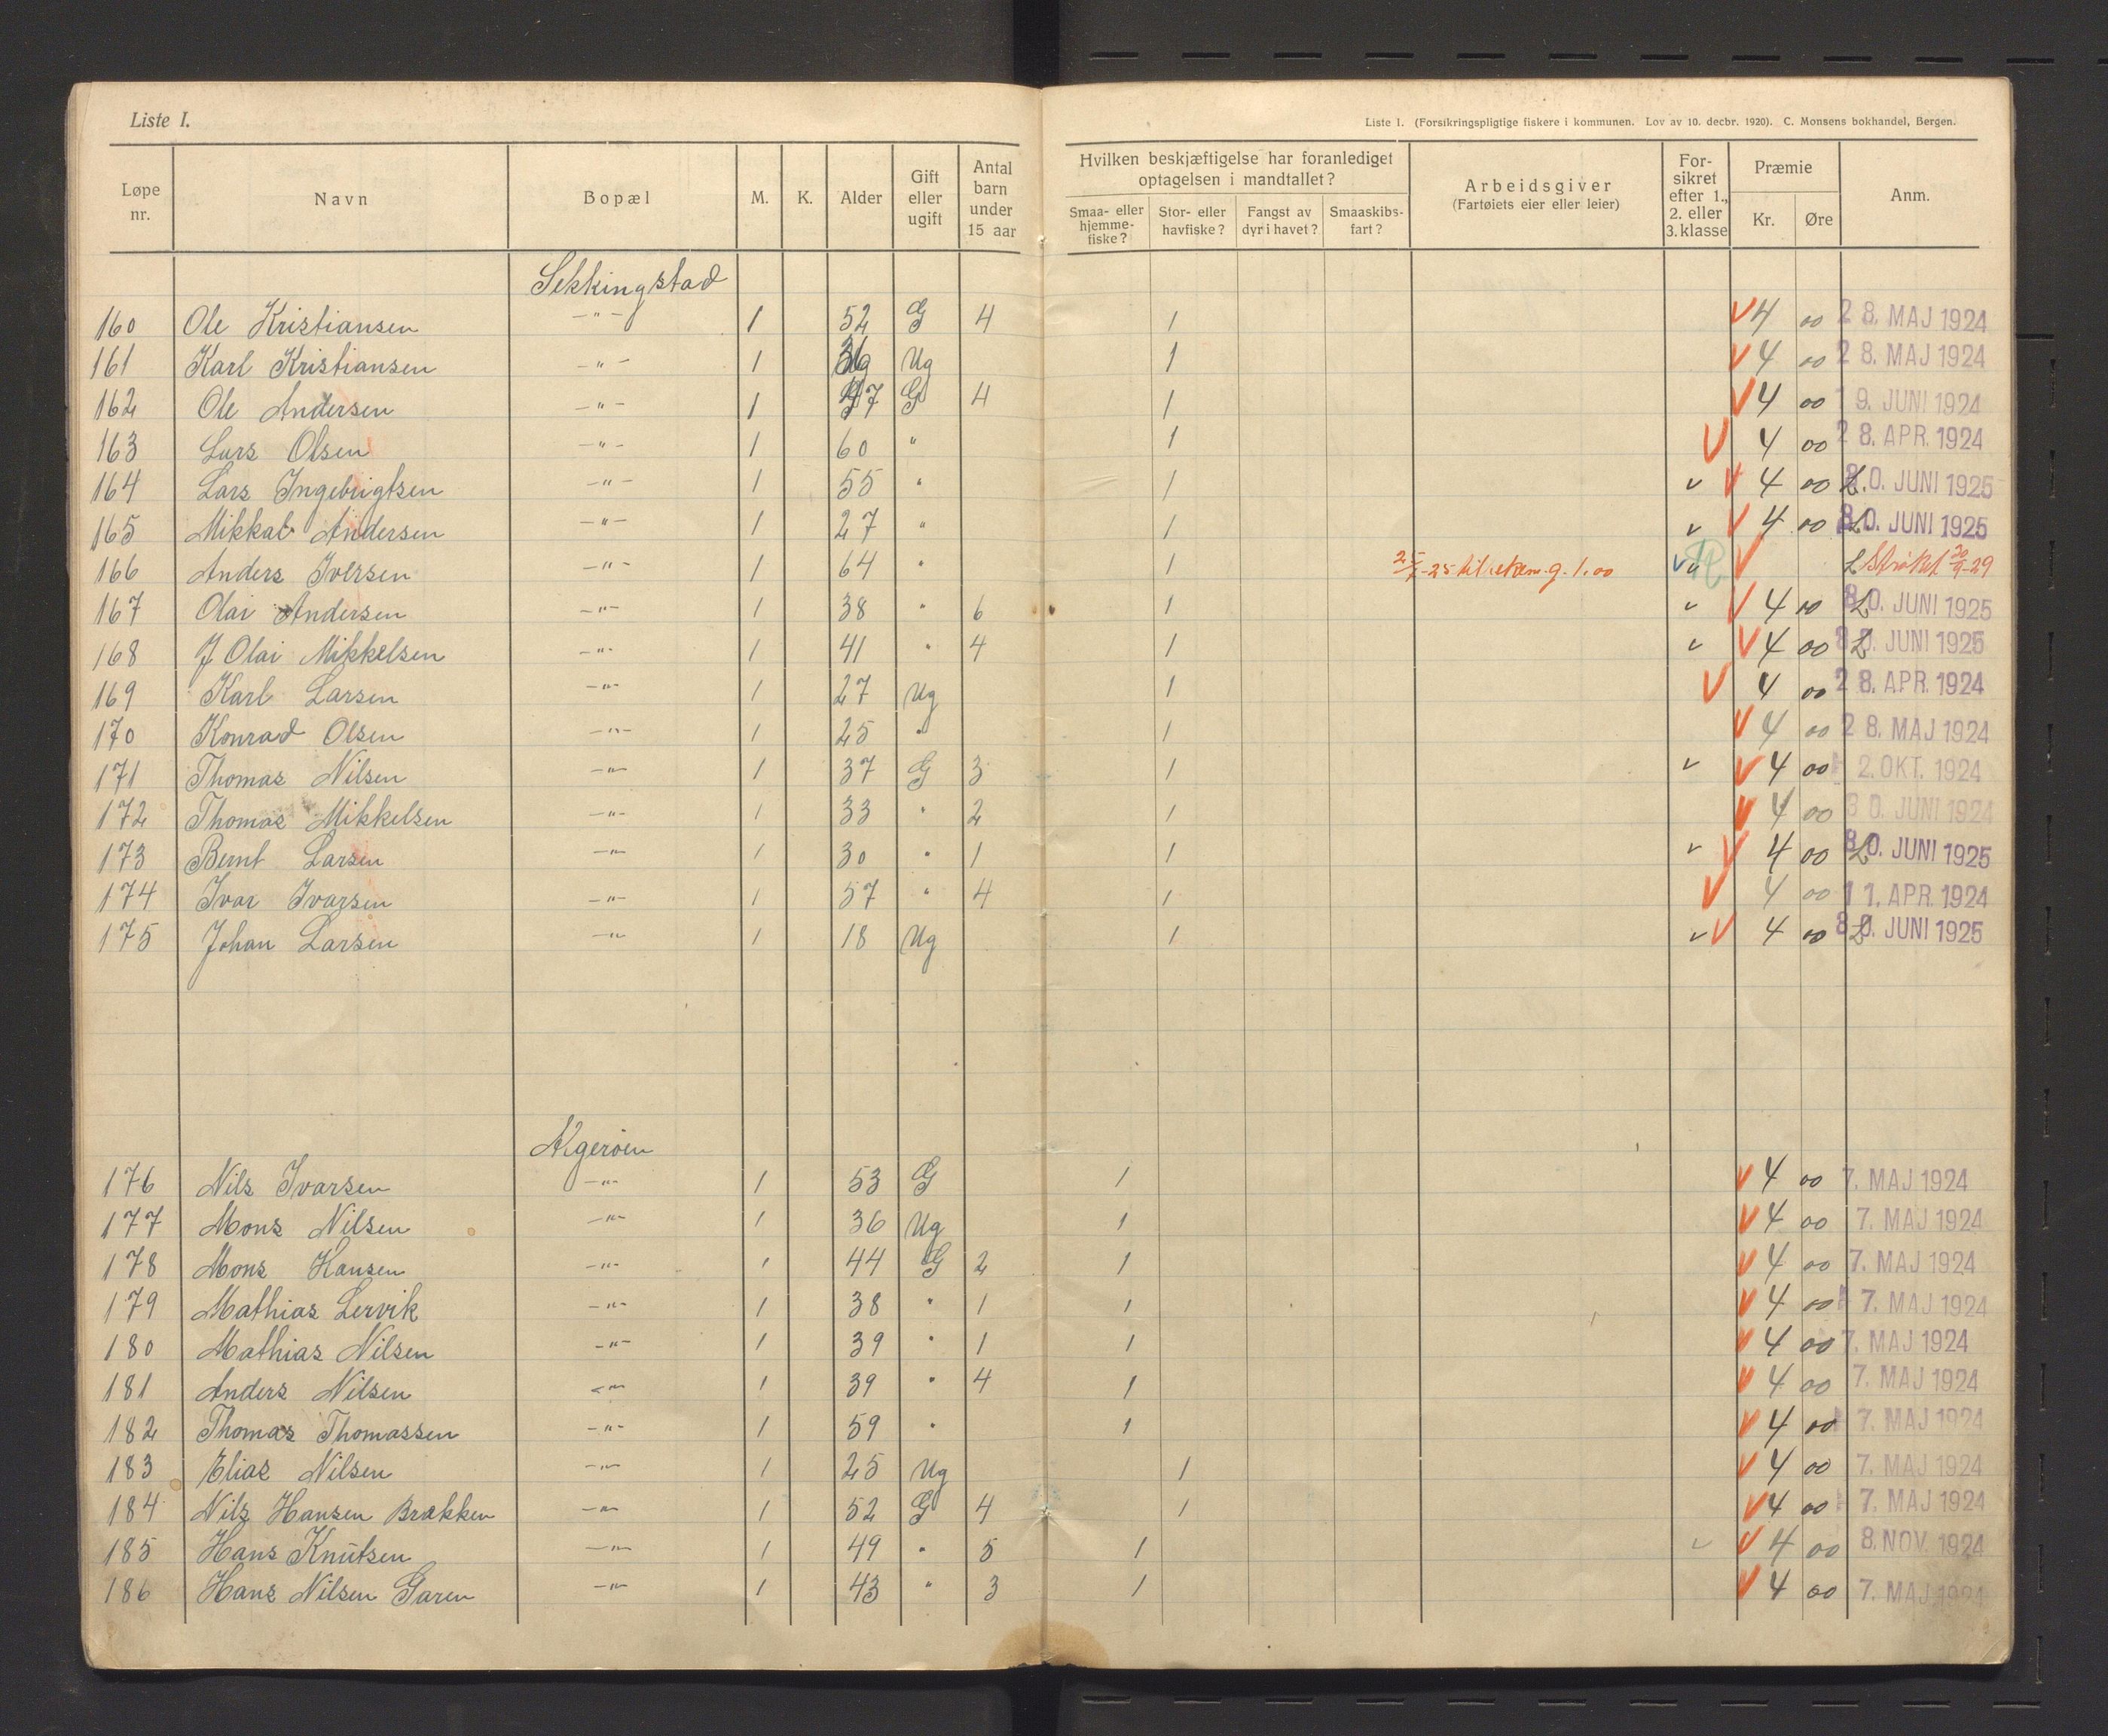 Liste I.
Liste 1. (Forsikringspligtige fiskere i kommunen. Lov av 10. decbr. 1920). C. Monsens bokhandel, Bergen.
Løpe nr. Navn Bopæl M. K. Alder Gift eller ugift Antal barn under 15 aar Hvilken beskjæftigelse har foranlediget optagelsen i mandtallet? Smaa- eller hjemme-fiske? Stor- eller havfiske? Fangst av dyr i havet? Smaaskibs-fart? Arbeidsgiver (Fartøiets eier eller leier) For-sikret efter 1., 2. eller 3. klasse Præmie Kr. Øre Anm.
Sekkingstad
160 Ole Kristiansen -"- 1 52 G 4 1 V 4 00 28. MAJ 1924
161 Karl Kristiansen -"- 1 Ug 1 V 4 00 28. MAJ 1924
162 Ole Andersen -"- 1 47 G 4 1 V 4 00 9. JUNI 1924
163 Lars Olsen -"- 1 60 " 1 V 4 00 28. APR. 1924
164 Lars Ingebrigtsen -"- 1 55 " 1 v V 4 00 L. 30. JUNI 1925
165 Mikkal Andersen -"- 1 27 " 1 v V 4 00 L 30. JUNI 1925
166 Anders Iversen -"- 1 64 " 1 v V L Strøket 20/9-29
167 Olai Andersen -"- 1 38 " 6 1 v V 4 00 L 30. JUNI 1925
168 J Olai Mikkelsen -"- 1 41 " 4 1 v V 4 00 L 30. JUNI 1925
169 Karl Larsen -"- 1 27 Ug 1 V 4 00 28. APR. 1924
170 Konrad Olsen -"- 1 25 " 1 V 4 00 28. MAJ 1924
171 Thomas Nilsen -"- 1 37 G 3 1 v V 4 00 2. OKT. 1924
172 Thomas Mikkelsen -"- 1 33 " 2 1 V 4 00 30. JUNI 1924
173 Bernt Larsen -"- 1 30 " 1 1 v V 4 00 L 30. JUNI 1925
174 Ivar Ivarsen -"- 1 57 " 4 1 V 4 00 11. APR. 1924
175 Johan Larsen -"- 1 18 Ug 1 v V 4 00 L 30. JUNI 1925
Algerøen
176 Nils Ivarsen -"- 1 53 G 1 V 4 00 7. MAJ 1924
177 Mons Nilsen -"- 1 36 Ug 1 V 4 00 7. MAJ 1924
178 Mons Hansen -"- 1 44 G 2 1 V 4 00 7. MAJ 1924
179 Mathias Lervik -"- 1 38 " 1 1 V 4 00 7. MAJ 1924
180 Mathias Nilsen -"- 1 39 " 1 1 V 4 00 7. MAJ 1924
181 Anders Nilsen -"- 1 39 " 4 1 V 4 00 7. MAJ 1924
182 Thomas Thomassen -"- 1 59 " 1 V 4 00 7. MAJ 1924
183 Elias Nilsen -"- 1 25 Ug 1 V 4 00 7. MAJ 1924
184 Nils Hansen Brakken -"- 1 52 G 4 1 V 4 00 7. MAJ 1924
185 Hans Knutsen -"- 1 49 " 5 1 v V 4 00 8. NOV. 1924
186 Hans Nilsen Garen -"- 1 43 " 3 1 V 4 00 7. MAJ 1924